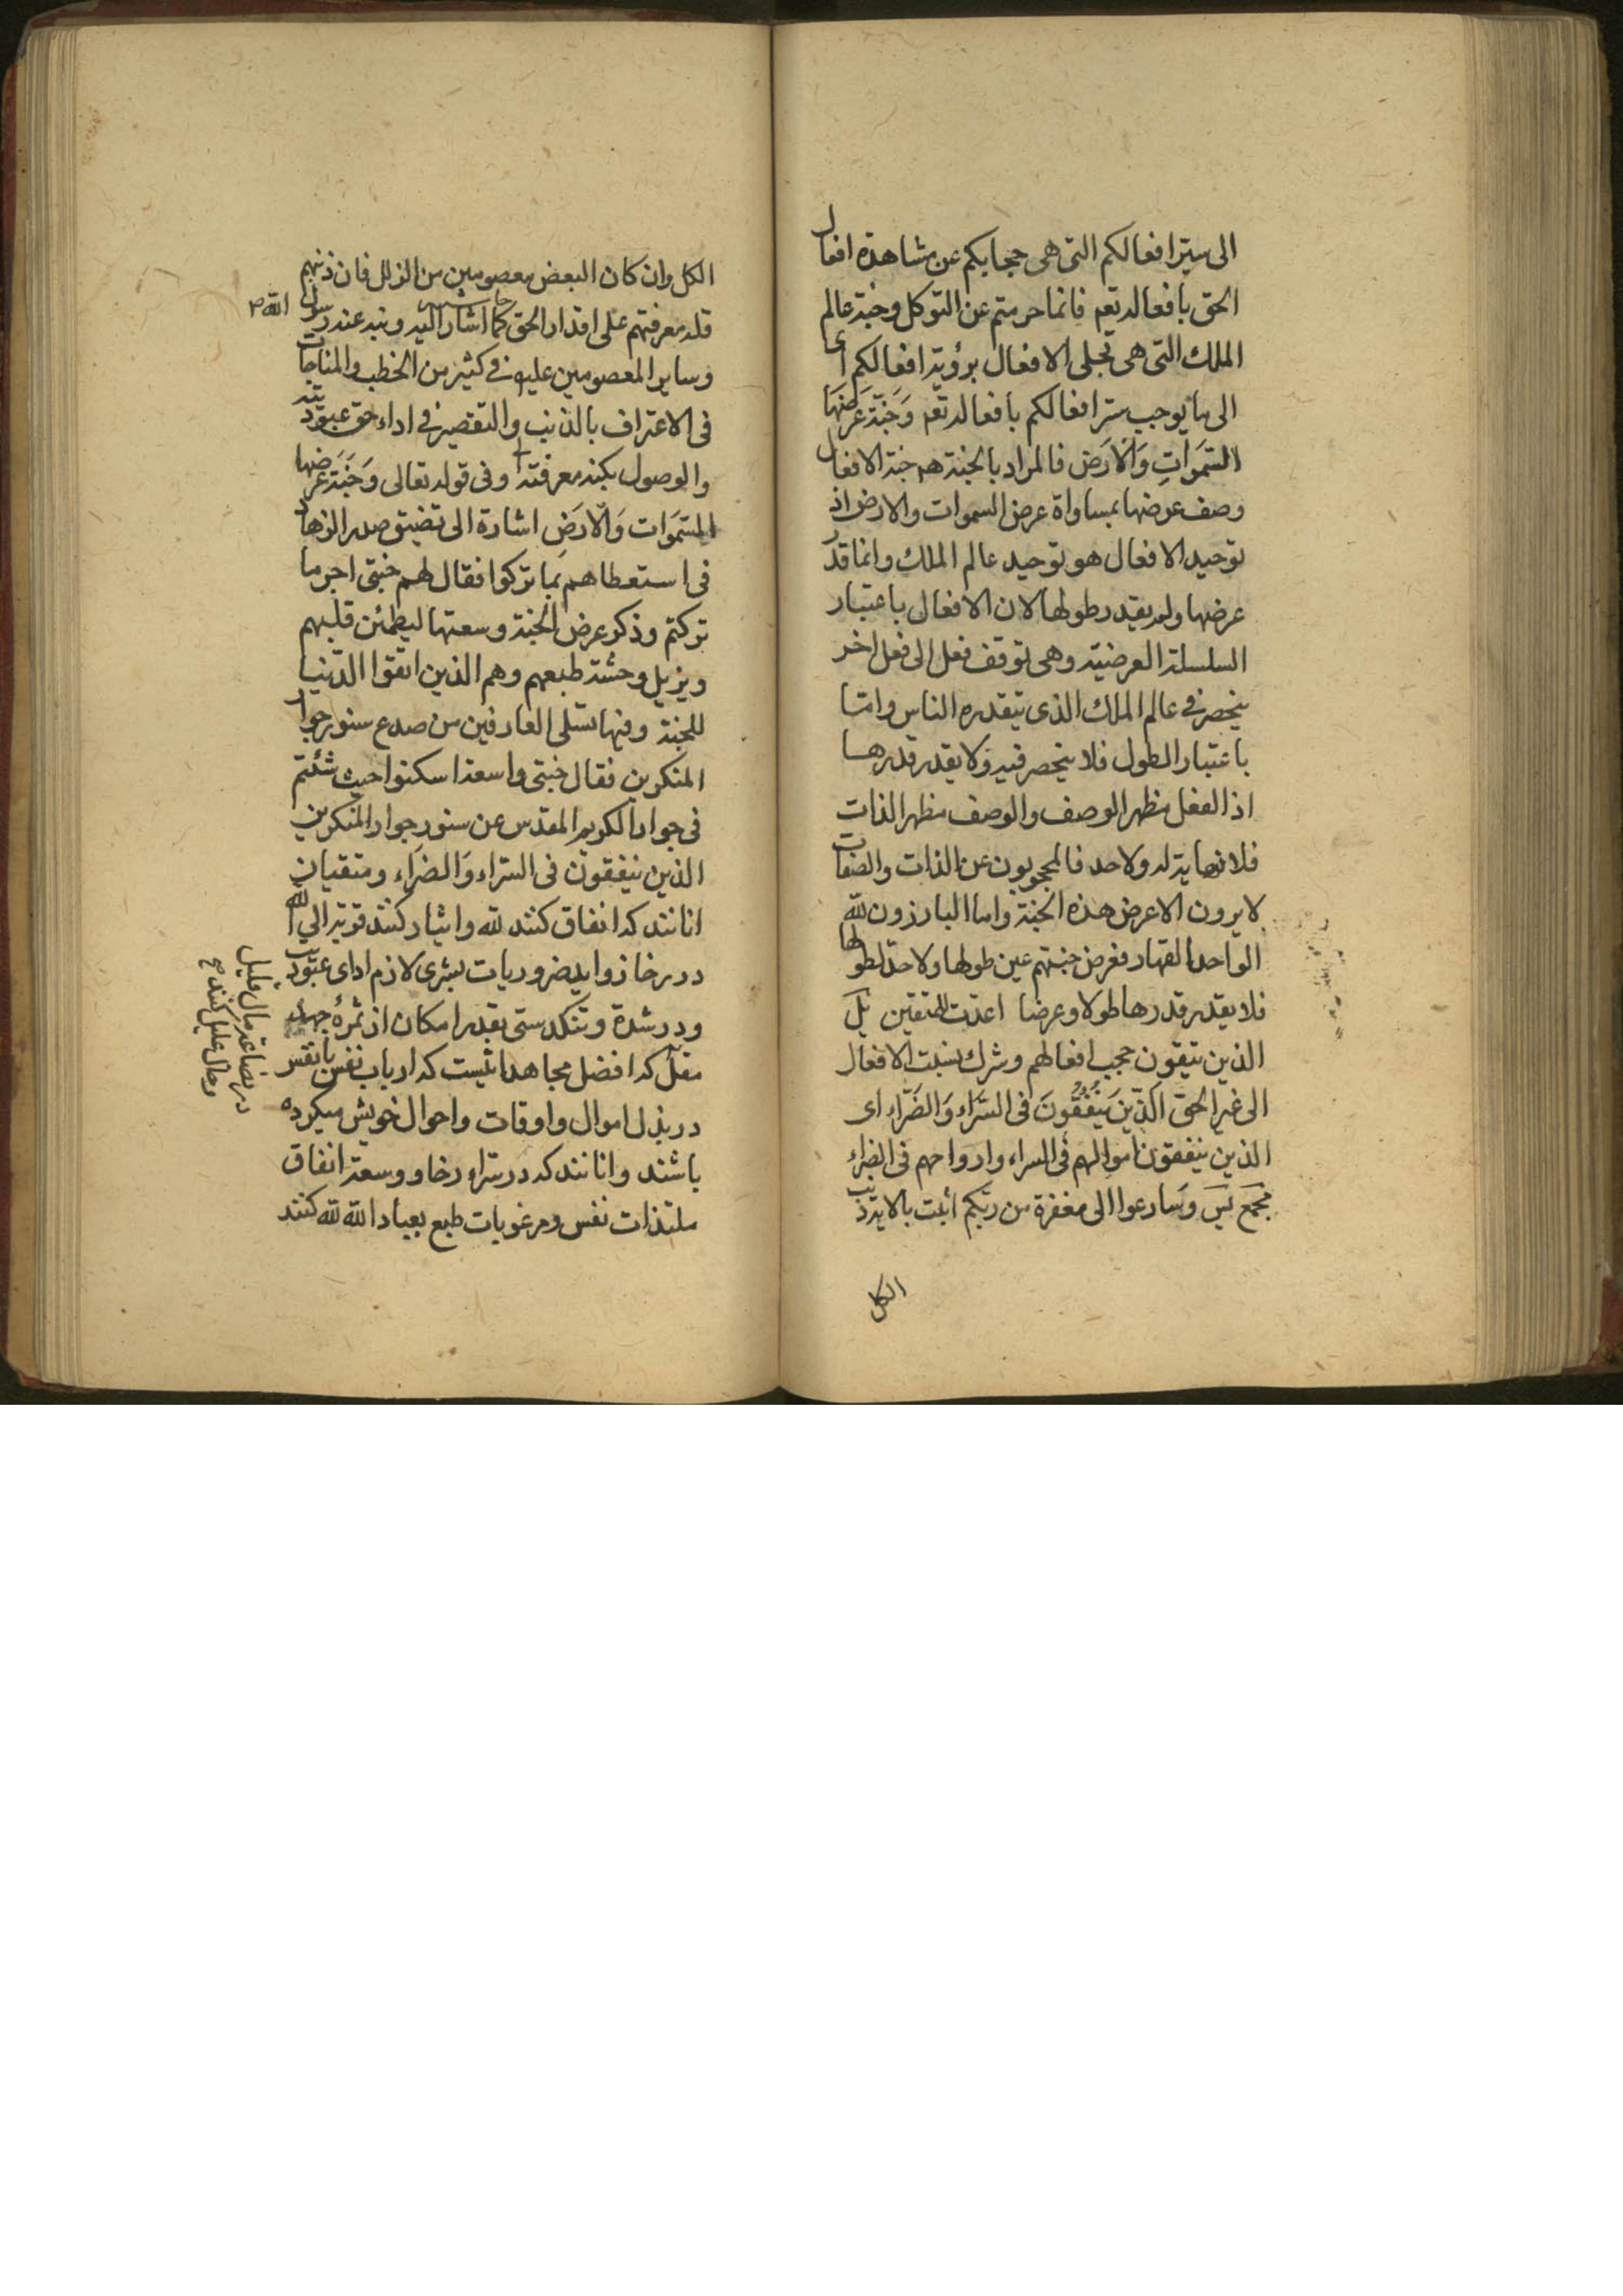 الى ستر افعالكم التى هى حجابكم عن مشاهدة افعال
الحق بافعاله تعم فانما حرمتم عن التوكل وجنة عالم
الملك التى هى تجلى الافعال برؤية افعالكم اى
الى ما يوجب ستر افعالكم بافعاله تعم وَجَنّة عَرضهَا
السّمَواتِ وَالاَرَض فالمراد بالجنة هم جنة الافعال
وصف عرضها بمساواة عرض السموات والارض اذ
توحيد الافعال هو توحيد عالم الملك وانما قدّر
عرضها ولم يقدر طولها لان الافعال باعتبار
السلسلة العرضية وهى توقف فعل الى فعل اخر
ينحصر فى عالم الملك الذى يتقدره الناس وامّا
باعتبار الطول فلا ينحصر فيه ولا يقدر قدرها
اذ الفعل مظهر الوصف والوصف مظهر الذات
فلا نهاية له ولا حد فالمحجوبون عن الذات والصفات
لا يرون الا عرض هذه الجنة واما البارزون لله
الواحد القهار فعرض جنتهم عين طولها ولا حدّ لطولها
فلا يقدر قدرها طولا وعرضا اعدّت للمتقين
الذين يتقون حجب افعالهم وشرك نسبت الافعال
الى غير الحق الَذّينَ يُنْفُقُونَ فى السّرَاء وَالضَرّاء اى
الذين ينفقون اموالهم فى السراء وارواحهم فى الضراء
مجمع وَسَارعوا الى مغفرة من ربّكم اثبت بالاية ذنب
الكل
الكل وان كان البعض معصومين من الزلل فان ذنبهم
قله معرفتهم على اقدار الحق كما اشار اليه ونبه عنه رسول الله ص
وساير المعصومين عليهم فى كثير من الخطب والمناجات
فى الاعتراف بالذنب والتقصير فى اداء حق عبوديته
والوصول بكنه معرفته وفى قوله تعالى وَجَنَة عَرَضها
السّمَوات وَالاّرَضِ اشارة الى تضيق صدر الزهاد
فى استعطاهم بما تركوا فقال لهم جنتى اجر ما
تركتم وذكر عرض الجنة وسعتها ليطمئن قلبهم
ويزيل وحشة طبعهم وهم الذين اتقوا الدّنيا
للجنة وفيها تسلى العارفين من صدع ستور جوار
المنكرين فقال جنتى واسعة اسكنوا حيث شئتم
فى جوار الكريم المقدس عن ستور جوار المنكرين
الذين ينفقون فى السّراء وَالضَراء ومتقيان
انانند كه انفاق كنند لله وايثار كنند قوتة الى الله
در رخا زوايد ضروريات بشرى لازم اداى عبوديت
ودر شدة وتنكدستى بقدر امكان از ثمرهٔ جهد
مقلّ كه افضل مجاهداتست كه ارباب نفس با نفس
در بذل اموال واوقات واحوال خويش ميكرده
باشند وانانند كه در سرّاء رخا ووسعة انفاق
ملتذات نفس ومرغوبات طبع بعباد الله لله كنند
مال قليل
كنند